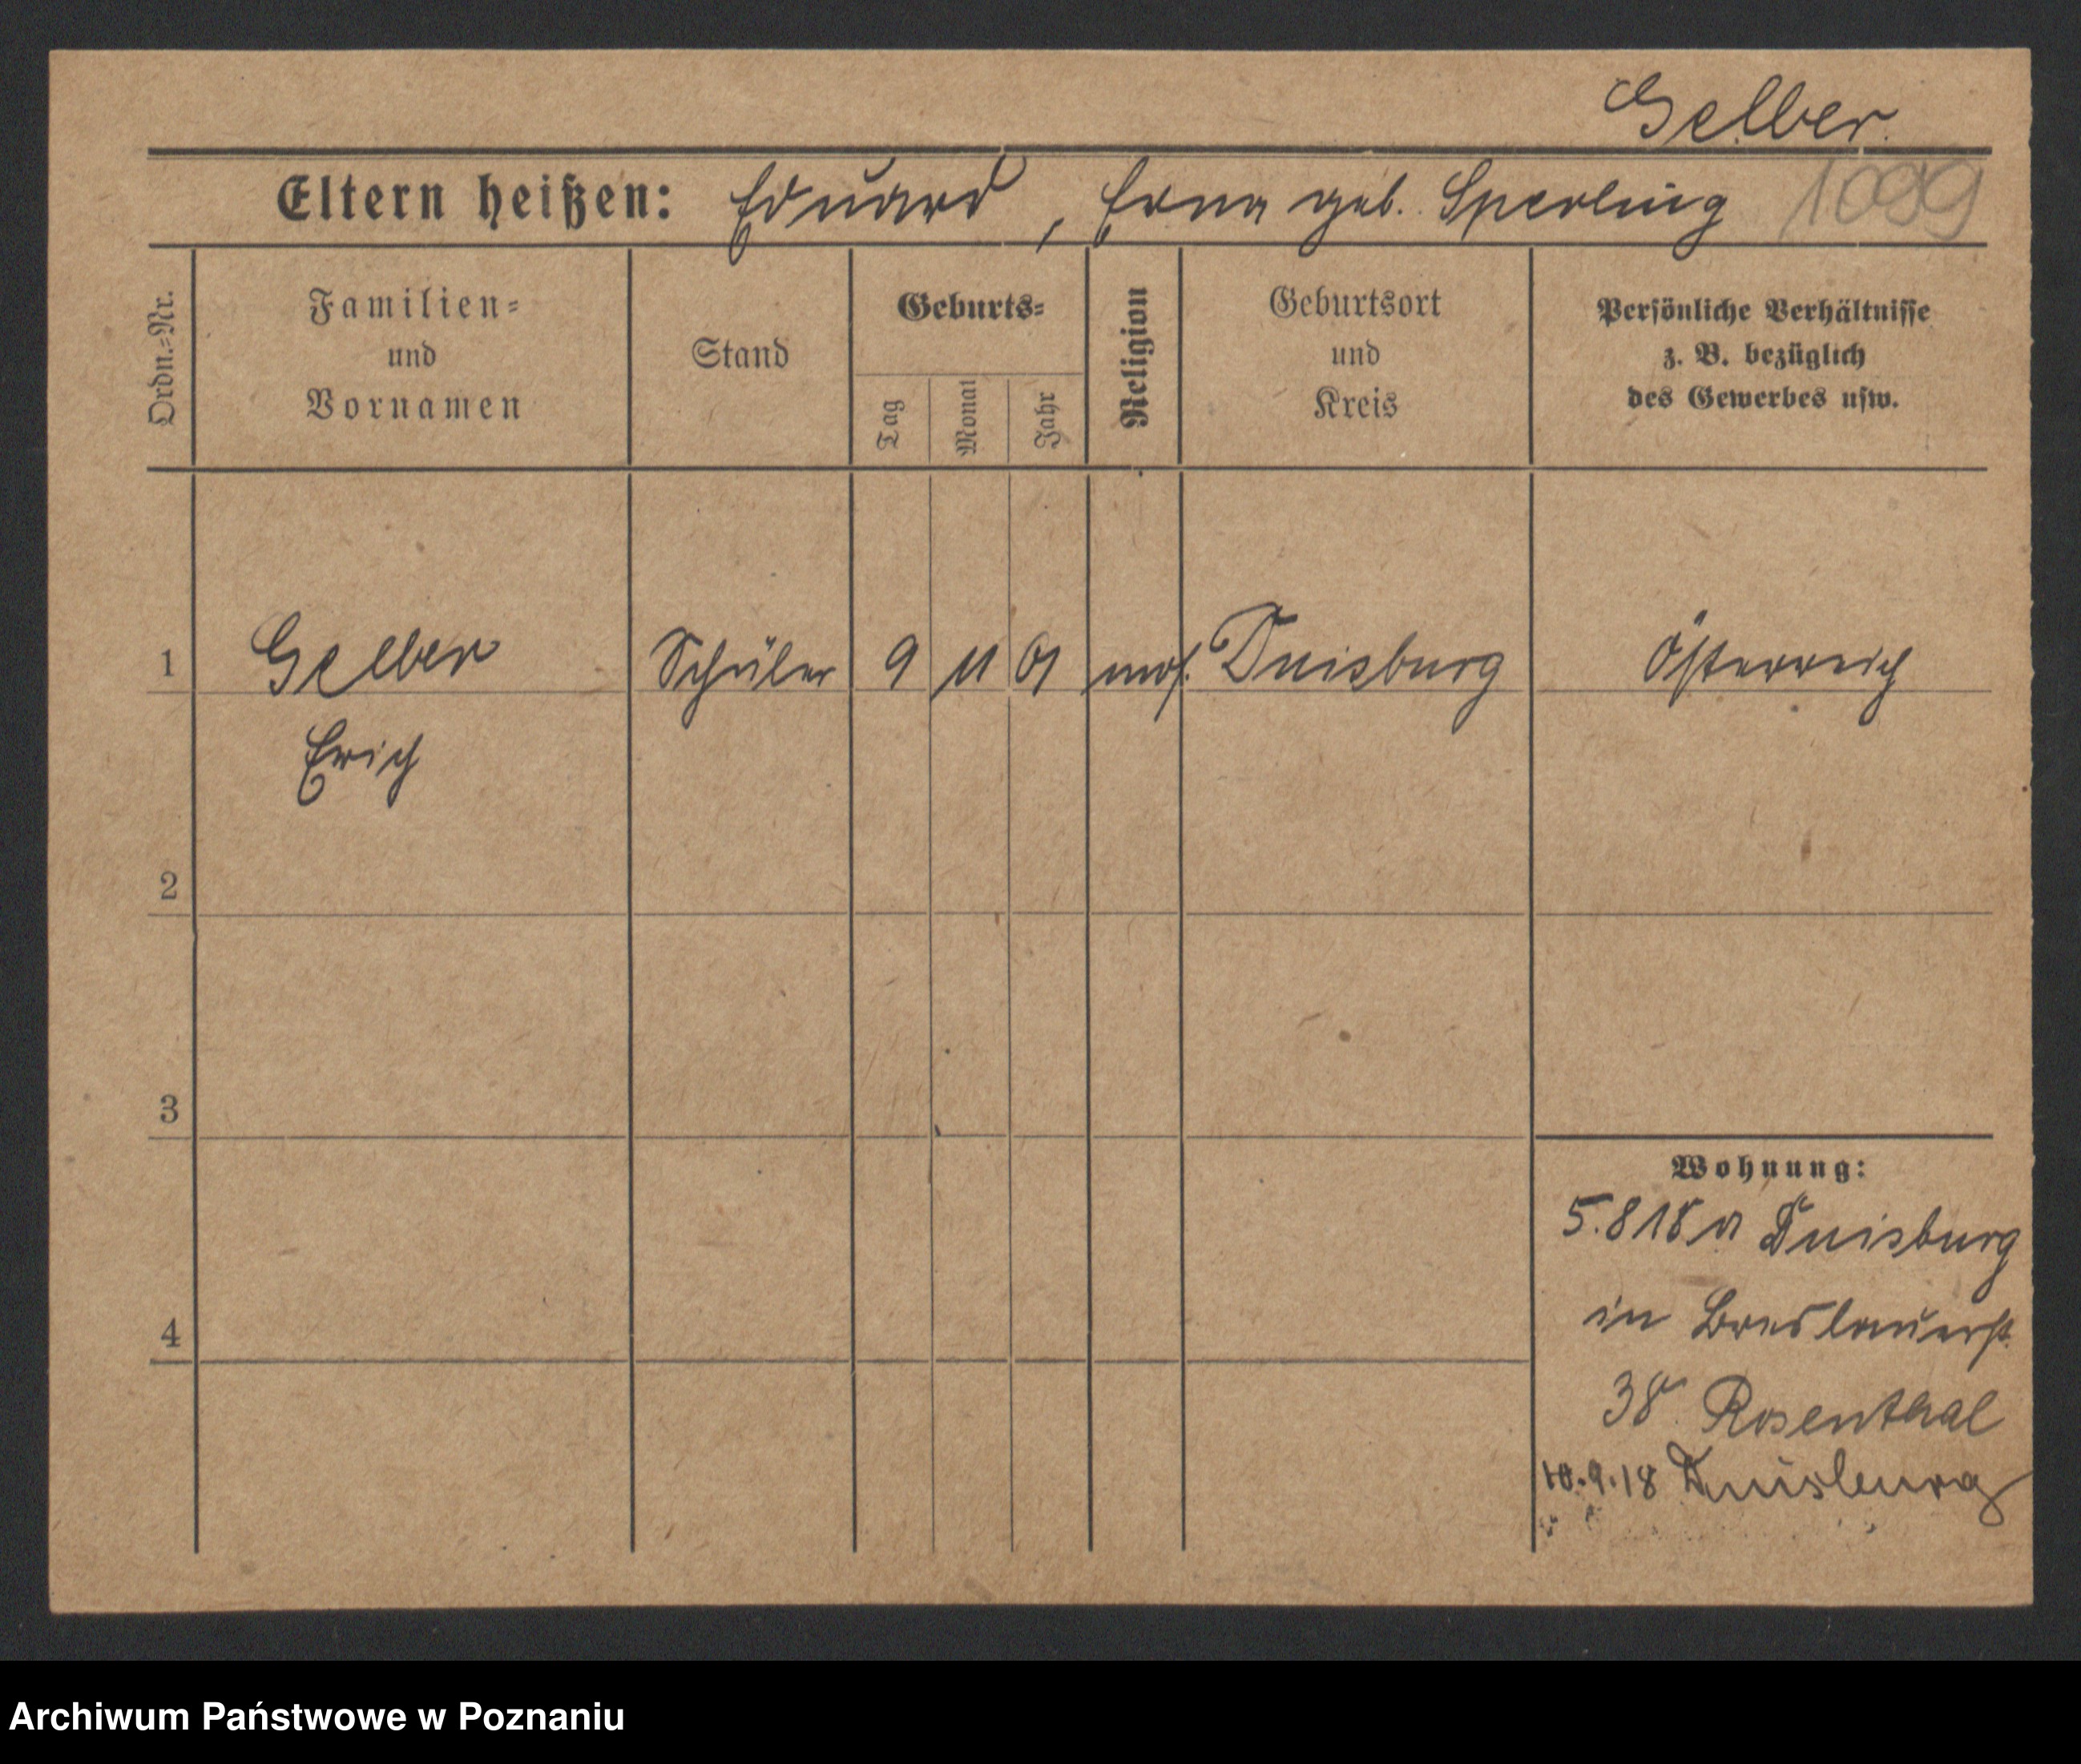 Gelber.
Eltern heißen: Eduard, Erna geb. Sperling 1099
Ordn.-Nr.
Familien-
und
Vornamen
Stand
Geburts-
Tag
Monat
Jahr
Religion
Geburtsort
und
Kreis
Persönliche Verhältnisse
z. B. bezüglich
des Gewerbes usw.
1 Gelber Schüler 9 11 01 mos. Duisburg Österreich
Erich
2
3
4
Wohnung:
5.8 18 a Duisburg
in Breslauerst.
38 Rosenthal
10.9.18 Duisburg
Archiwum Państwowe w Poznaniu